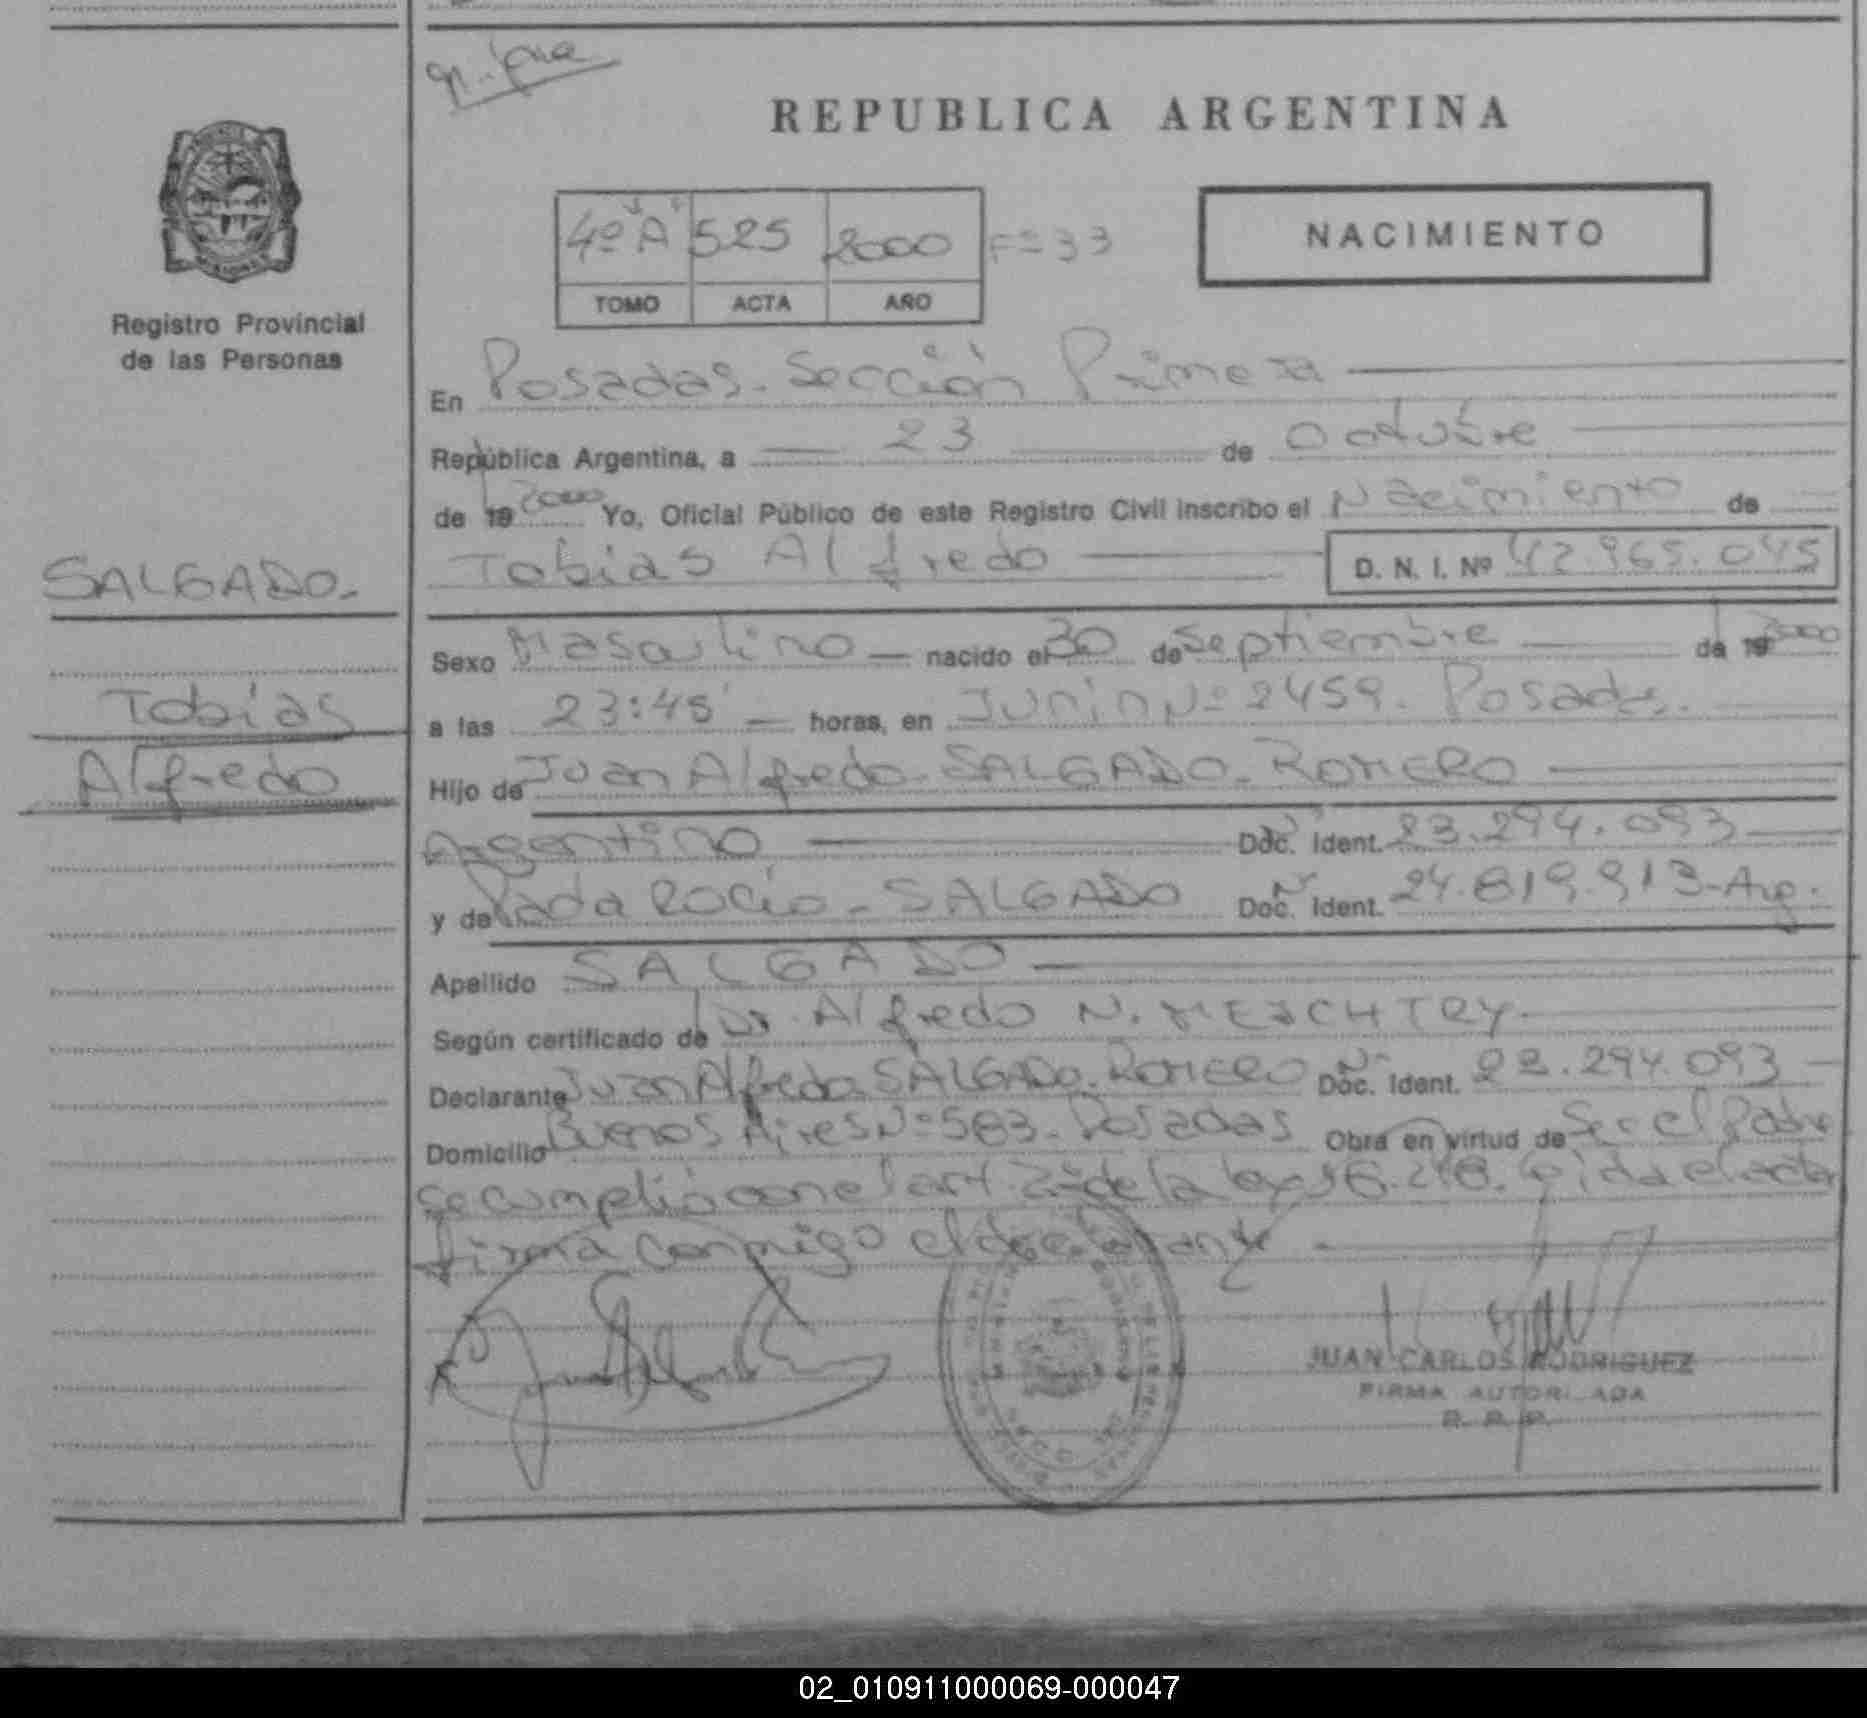 REPUBLICA ARGENTINA
4º A 525 2000 Fº 33
TOMO ACTA AÑO
NACIMIENTO
Registro Provincial
de las Personas
En Posadas - Sección Primera
República Argentina, a 23 de Octubre
de 19 2000 Yo, Oficial Público de este Registro Civil inscribo el Nacimiento de
Tobias Alfredo D. N. I. Nº 42.965.045
SALGADO.
Tobias
Alfredo
Sexo Masculino nacido el 30 de Septiembre de 19 2000
a las 23:45 horas, en Junin Nº 2459. Posadas.
Hijo de Juan Alfredo - SALGADO - ROMERO
Argentino Doc. Ident. 23.294.093
y de Rocio - SALGADO Doc. Ident. 24.819.913 - Arg.
Apellido SALGADO
Según certificado de Dr. Alfredo N.
Declarante Juan Alfredo SALGADO - ROMERO Doc. Ident. 23.294.093
Domicilio Buenos Aires Nº 583 - Posadas Obra en virtud de Ser el Padre
se cumplió con el art. 2º de la ley el acta
firma conmigo el declarante
JUAN CARLOS RODRIGUEZ
FIRMA AUTORIZADA
R. P. P.
02_010911000069-000047